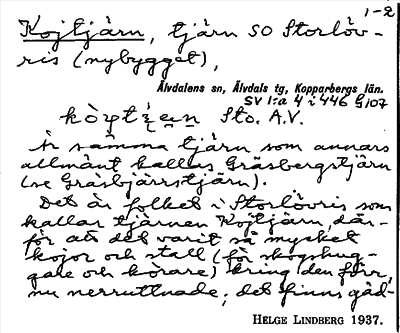 1-2
Kojtjärn, tjärn SO Storlöv-
ris (nybygget),
Älvdalens sn, Älvdals tg, Kopparbergs län.
SV 1:a 4 i 446 G 107
Sto. A.V.
Är samma tjärn som annars
allmänt kallas Gräsbergstjärn
(se Gräsbjärrstjärn).
Det är folket i Storlövris som
kallar tjärnen Kojtjärn, där-
för att det varit så mycket
kojor och stall (för skogshug-
gare och körare) kring den förr,
nu nerruttnade; det finns gäd-
HELGE LINDBERG 1937.